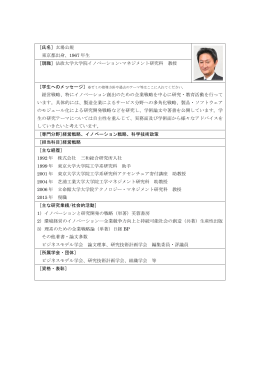 [氏名] 玄場公規
東京都出身、1967 年生
[現職] 法政大学大学院イノベーション・マネジメント研究科 教授
[学生へのメッセージ]
経営戦略、特にイノベーション創出のための企業戦略を中心に研究・教育活動を行っています。具体的には、製造企業によるサービス分野への多角化戦略、製品・ソフトウェア
のモジュール化による研究開発戦略などを研究し、学術論文や著書を公開しています。学
生の研究テーマについては主体性を重視し、戦略論および実践的な手法から様々なアドバイスをし
ていきたいと考えています。
[専門分野]経営戦略、イノベーション戦略、科学技術政策
[担当科目]経営戦略
[主な経歴]
1992 年 株式会社 三和総合研究所入社
1999 年 東京大学大学院工学系研究科 助手
2001 年 東京大学大学院工学系研究科アクセンチュア寄付講座 助教授
2004 年 芝浦工業大学大学院工学マネジメント研究科 助教授
2006 年 立命館大学大学院テクノロジー・マネジメント研究科 教授
2015 年 現職
[主な研究業績/社会的活動]
1) イノベーションと研究開発の戦略(単著)芙蓉書房
2) 環境経営のイノベーション―企業競争力向上と持続可能社会の創造(共著)生産性出版
3) 理系のための企業戦略論(単著)日経 BP
その他著書・論文多数
ビジネスモデル学会 論文理事、研究技術計画学会 編集委員・評議員
[所属学会・団体]
ビジネスモデル学会、研究技術計画学会、組織学会 等
[資格・表彰]